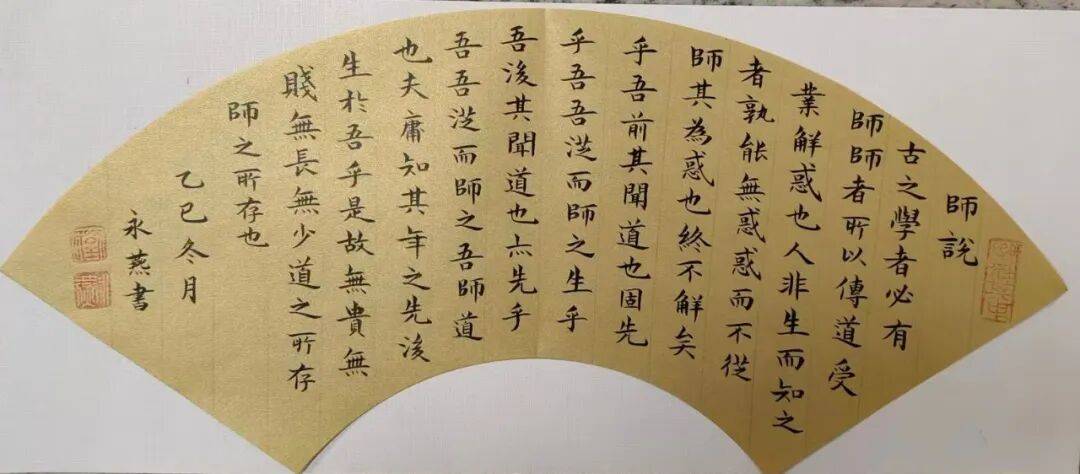 師說
古之學者必有
師師者所以傳道受
業解惑也人非生而知之
者孰能無惑惑而不從
師其為惑也終不解矣
乎吾前其聞道也固先
乎吾吾從而師之生乎
吾後其聞道也亦先乎
吾吾從而師之吾師道
也夫庸知其年之先後
生於吾乎是故無貴無
賤無長無少道之所存
師之所存也
乙巳冬月
永燕書